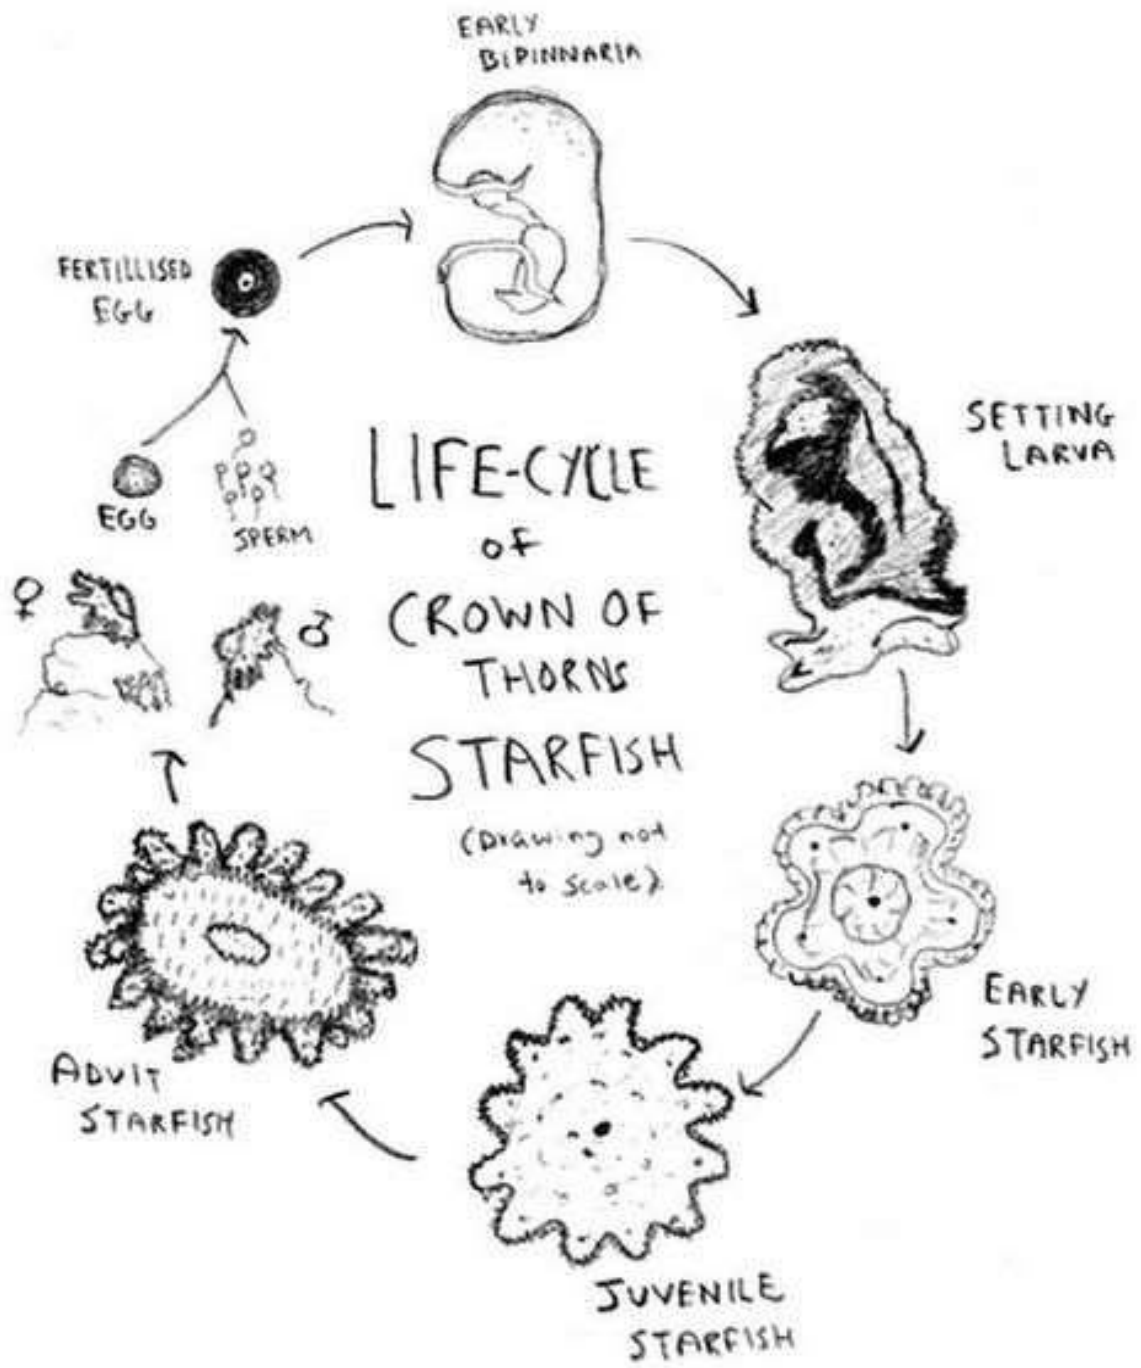 EARLY
BIPINNARIA
FERTILLISED
EGG
SETTING
LARVA
EGG
SPERM
♀
♂
LIFE-CYCLE
OF
CROWN OF
THORNS
STARFISH
(Drawing not
to scale).
EARLY
STARFISH
ADULT
STARFISH
JUVENILE
STARFISH